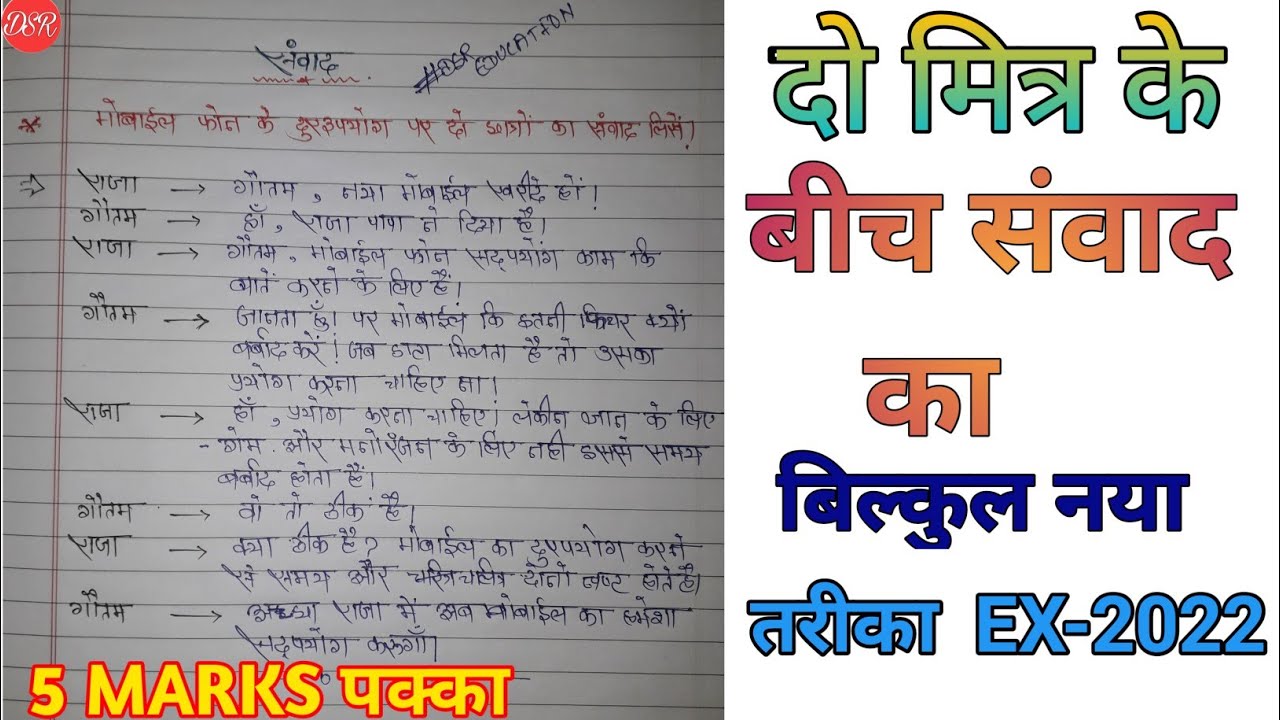 DSR
संवाद
#DSR EDUCATION
* मोबाईल फोन के दुरुपयोग पर दो छात्रों का संवाद लिखें!
⇒ राजा → गौतम, नया मोबाईल खरीदे हों!
गौतम → हाँ, राजा पापा ने दिया है।
राजा → गौतम, मोबाईल फोन सद्पयोग काम कि
बातें करने के लिए हैं।
गौतम → जानता हुँ। पर मोबाईल कि इतनी फिचर क्यों
बर्बाद करें! जब डाटा मिलता है तो उसका
प्रयोग करना चाहिए ना।
राजा → हाँ, प्रयोग करना चाहिए। लेकीन ज्ञान के लिए
- गेम और मनोरंजन के लिए नही इससे समय
बर्बाद होता हैं।
गौतम → वो तो ठीक है।
राजा → क्या ठीक है? मोबाईल का दुरपयोग करने
से समय और दोनो नष्ट होते है।
गौतम → अच्छा राजा में अब मोबाईल का हमेशा
सद्पयोग करूगाँ।
5 MARKS पक्का
दो मित्र के
बीच संवाद
का
बिल्कुल नया
तरीका EX-2022